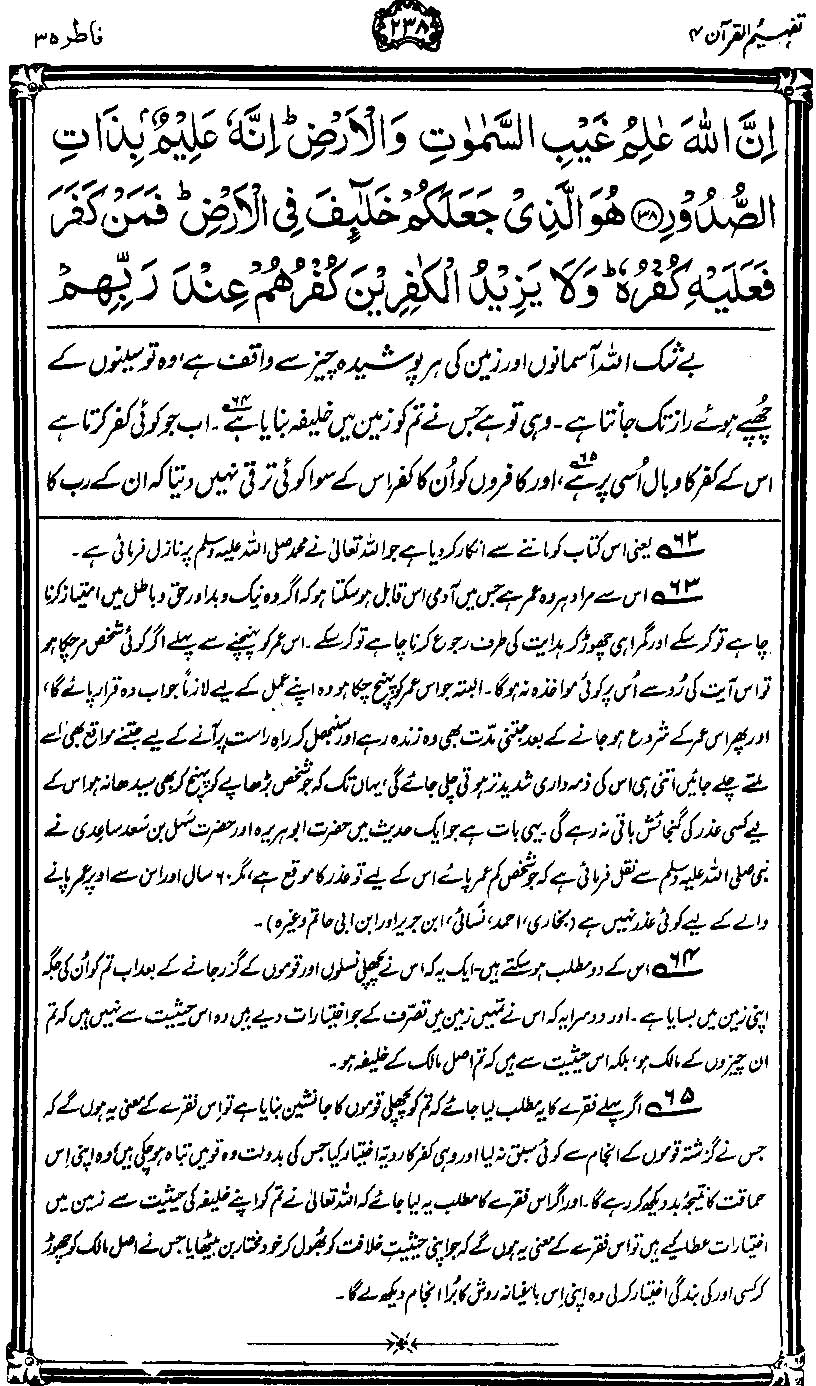 تفہیم القرآن ۴
۲۳۸
فاطر ۳۵
اِنَّ اللّٰهَ عٰلِمُ غَيْبِ السَّمٰوٰتِ وَالْاَرْضِ ؕ اِنَّهٗ عَلِيْمٌۢ بِذَاتِ
الصُّدُوْرِ ﴿۳۸﴾ هُوَ الَّذِيْ جَعَلَكُمْ خَلٰٓئِفَ فِي الْاَرْضِ ؕ فَمَنْ كَفَرَ
فَعَلَيْهِ كُفْرُهٗ ؕ وَلَا يَزِيْدُ الْكٰفِرِيْنَ كُفْرُهُمْ عِنْدَ رَبِّهِمْ
بے شک اللہ آسمانوں اور زمین کی ہر پوشیدہ چیز سے واقف ہے، وہ تو سینوں کے
چھُپے ہوئے راز تک جانتا ہے۔ وہی تو ہے جس نے تم کو زمین میں خلیفہ بنایا ہے۶۴۔ اب جو کوئی کفر کرتا ہے
اس کے کفر کا وبال اُسی پر ہے۶۵، اور کافروں کو اُن کا کفر اس کے سوا کوئی ترقی نہیں دیتا کہ ان کے رب کا
۶۲ یعنی اس کتاب کو ماننے سے انکار کر دیا ہے جو اللہ تعالیٰ نے محمد صلی اللہ علیہ وسلم پر نازل فرمائی ہے۔
۶۳ اس سے مراد ہر وہ عمر ہے جس میں آدمی اس قابل ہو سکتا ہو کہ اگر وہ نیک و بد اور حق و باطل میں امتیاز کرنا
چاہے تو کر سکے اور گمراہی چھوڑ کر ہدایت کی طرف رجوع کرنا چاہے تو کر سکے۔ اس عمر کو پہنچنے سے پہلے اگر کوئی شخص مر چکا ہو
تو اس آیت کی رُو سے اُس پر کوئی مواخذہ نہ ہوگا۔ البتہ جو اس عمر کو پہنچ چکا ہو وہ اپنے عمل کے لیے لازماً جواب دہ قرار پائے گا،
اور پھر اس عمر کے شروع ہو جانے کے بعد جتنی مدّت بھی وہ زندہ رہے اور سنبھل کر راہِ راست پر آنے کے لیے جتنے مواقع بھی اُسے
ملتے چلے جائیں اتنی ہی اس کی ذمہ داری شدید تر ہوتی چلی جائے گی، یہاں تک کہ جو شخص بڑھاپے کو پہنچ کر بھی سیدھا نہ ہو اس کے
لیے کسی عذر کی گنجائش باقی نہ رہے گی۔ یہی بات ہے جو ایک حدیث میں حضرت ابو ہریرہ اور حضرت سَہل بن سَعد ساعدی نے
نبی صلی اللہ علیہ وسلم سے نقل فرمائی ہے کہ جو شخص کم عمر پائے اس کے لیے تو عذر کا موقع ہے، مگر ۶۰ سال اور اس سے اوپر عمر پانے
والے کے لیے کوئی عذر نہیں ہے (بخاری، احمد، نَسائی، ابن جریر اور ابن ابی حاتم وغیرہ)۔
۶۴ اس کے دو مطلب ہو سکتے ہیں۔ ایک یہ کہ اس نے پچھلی نسلوں اور قوموں کے گزر جانے کے بعد اب تم کو اُن کی جگہ
اپنی زمین میں بسایا ہے۔ اور دوسرا یہ کہ اس نے تمہیں زمین میں تصرّف کے جو اختیارات دیے ہیں وہ اس حیثیت سے نہیں ہیں کہ تم
ان چیزوں کے مالک ہو، بلکہ اس حیثیت سے ہیں کہ تم اصل مالک کے خلیفہ ہو۔
۶۵ اگر پہلے فقرے کا یہ مطلب لیا جائے کہ تم کو پچھلی قوموں کا جانشین بنایا ہے تو اِس فقرے کے معنی یہ ہوں گے کہ
جس نے گزشتہ قوموں کے انجام سے کوئی سبق نہ لیا اور وہی کفر کا رویّہ اختیار کیا جس کی بدولت وہ قومیں تباہ ہو چکی ہیں، وہ اپنی اِس
حماقت کا نتیجۂ بد دیکھ کر رہے گا۔ اور اگر اس فقرے کا مطلب یہ لیا جائے کہ اللہ تعالیٰ نے تم کو اپنے خلیفہ کی حیثیت سے زمین میں
اختیارات عطا کیے ہیں تو اس فقرے کے معنی یہ ہوں گے کہ جو اپنی حیثیتِ خلافت کو بھُول کر خود مختار بن بیٹھا یا جس نے اصل مالک کو چھوڑ
کر کسی اور کی بندگی اختیار کر لی وہ اپنی اِس باغیانہ روش کا بُرا انجام دیکھ لے گا۔